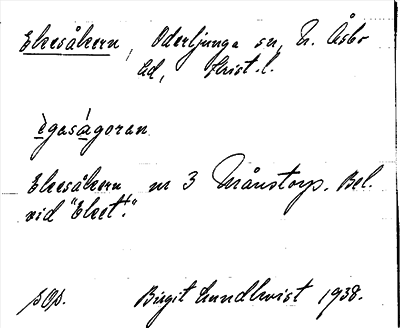 Ekesåkern, Oderljunga sn, N. Åsbo
hd, Krist. l.
ègasàgoran
Ekesåkern nr 3 Månstorp. Bel.
vid "Eket".
sOp. Birgit Lundkvist 1938.